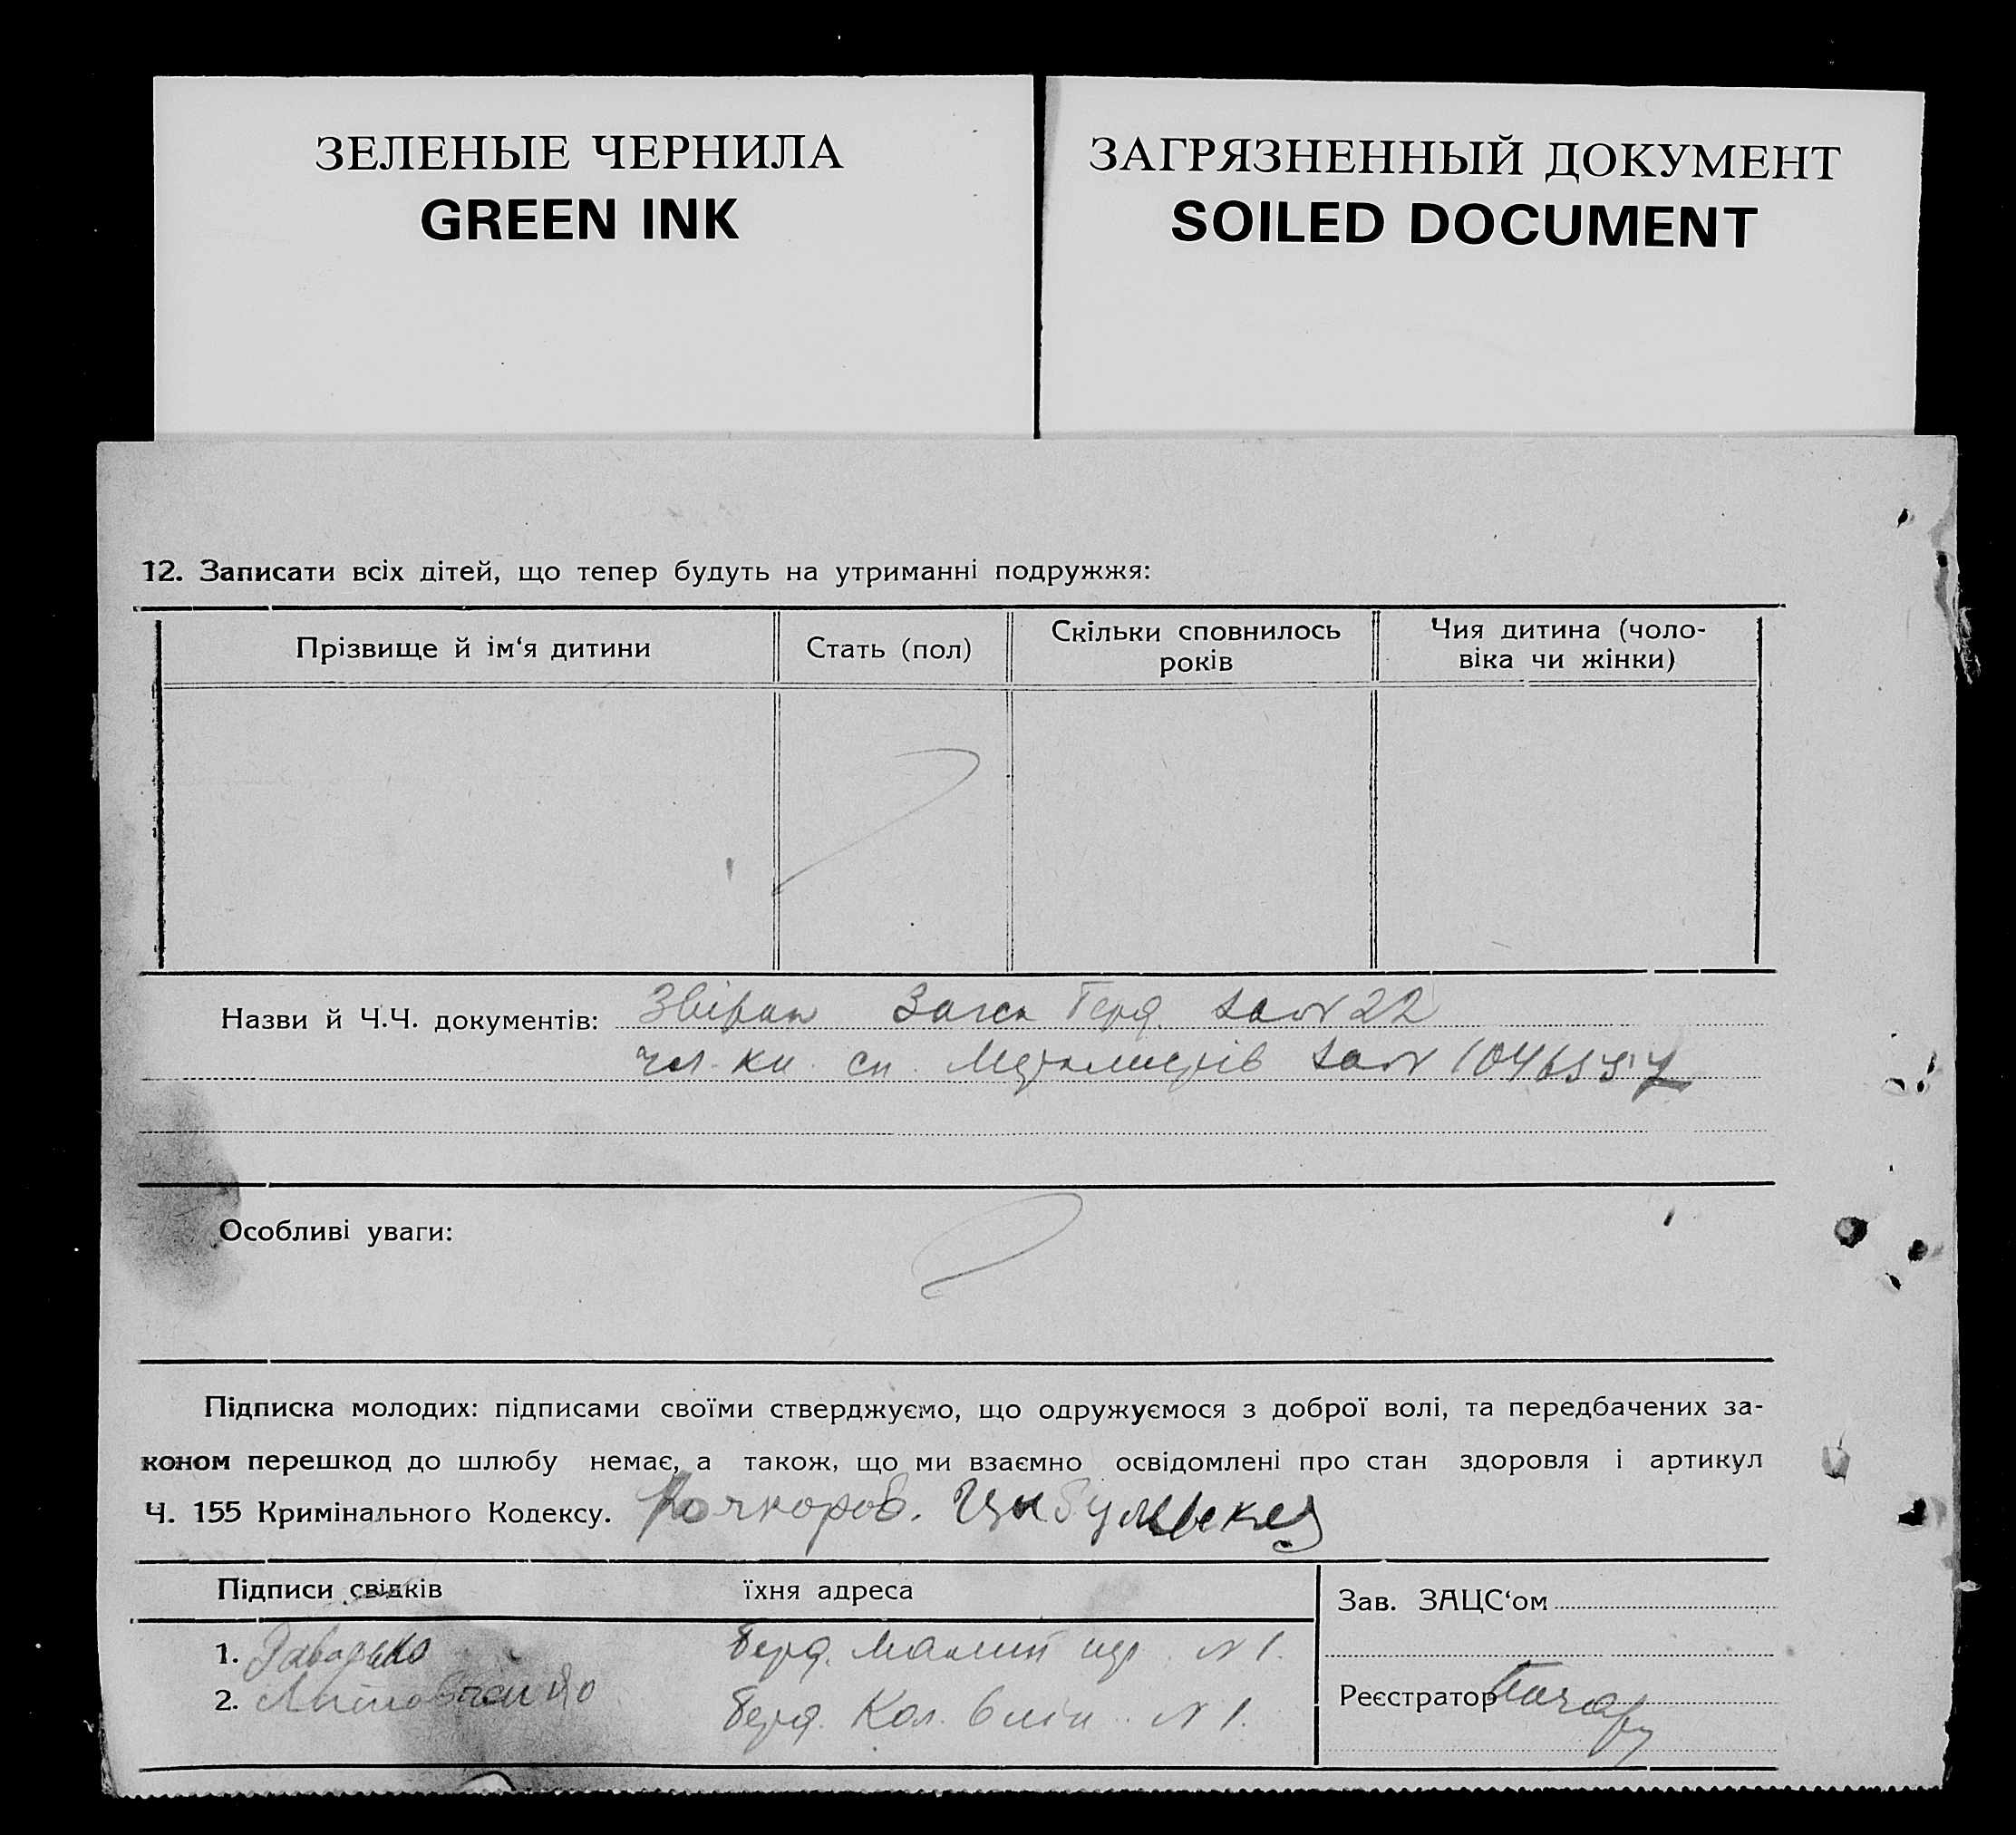 ЗЕЛЕНЫЕ ЧЕРНИЛА
GREEN INK
ЗАГРЯЗНЕННЫЙ ДОКУМЕНТ
SOILED DOCUMENT
12. Записати всіх дітей, що тепер будуть на утриманні подружжя:
Прізвище й ім‘я дитини
Стать (пол)
Скільки сповнилось
років
Чия дитина (чоло-
віка чи жінки)
Назви й Ч.Ч. документів: Загса Берд. за № 22
чл. кн. сп. Металистів за № 1046557
Особливі уваги:
Підписка молодих: підписами своїми стверджуємо, що одружуємося з доброї волі, та передбачених за-
коном перешкод до шлюбу немає, а також, що ми взаємно освідомлені про стан здоровля і артикул
Ч. 155 Кримінального Кодексу.
Підписи свідків
їхня адреса
1. Берд. Малий № 1.
2. Берд. Кол. № 1.
Зав. ЗАЦС‘ом
Реєстратор